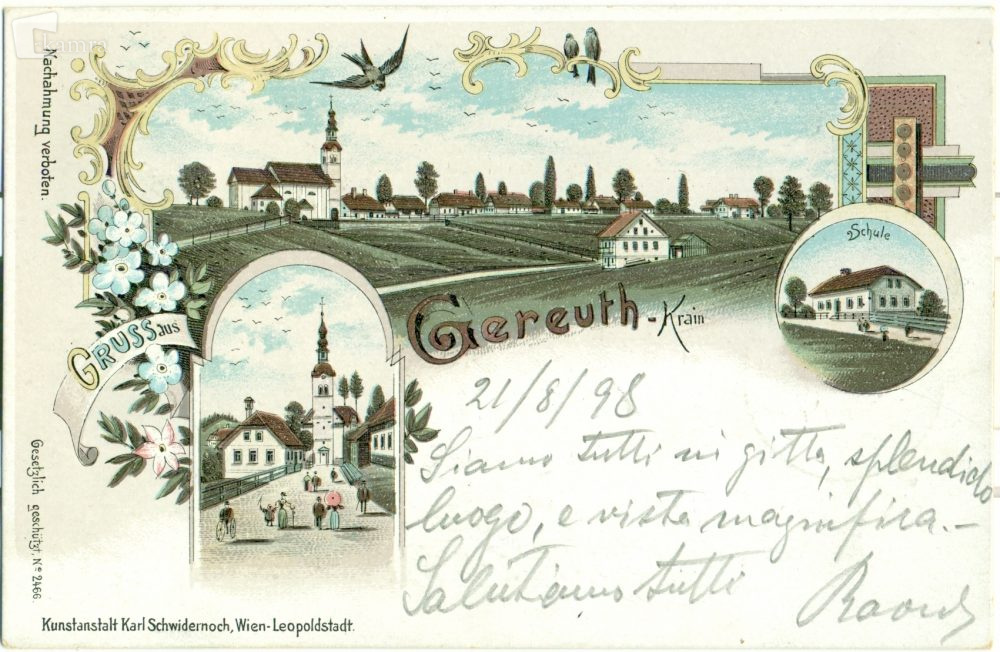 Kamra
Nachahmung verboten.
Schule
GRUSS aus
Gereuth - Krain
21/8/98
Siamo tutti in gitta, splendido
luogo, e vista magnifica.-
Salutiamo tutti
Gesetzlich geschützt. Nº 2466.
Kunstanstalt Karl Schwidernoch, Wien-Leopoldstadt.